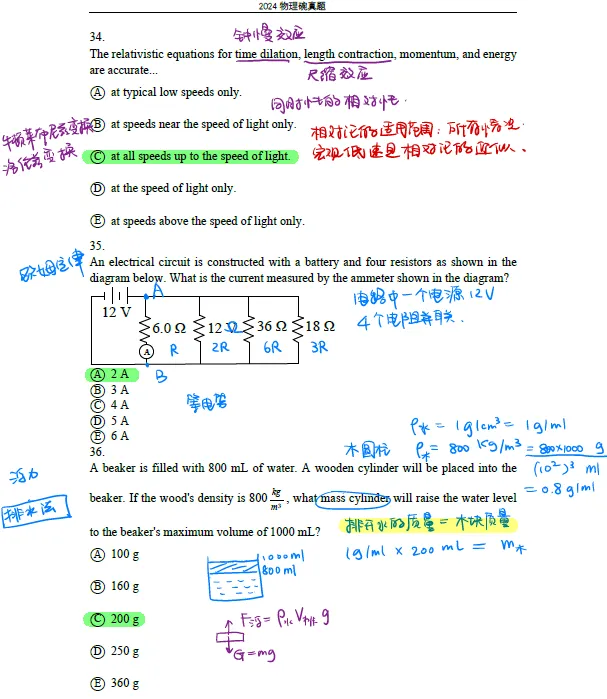 2024 物理碗真题
34.
钟慢效应
The relativistic equations for time dilation, length contraction, momentum, and energy
are accurate...
尺缩效应
Ⓐ at typical low speeds only.
同时性的相对性
Ⓑ at speeds near the speed of light only.
相对论的适用范围：所有情况
洛伦兹变换
Ⓒ at all speeds up to the speed of light.
宏观低速是相对论的近似、
Ⓓ at the speed of light only.
Ⓔ at speeds above the speed of light only.
35.
欧姆定律
An electrical circuit is constructed with a battery and four resistors as shown in the
diagram below. What is the current measured by the ammeter shown in the diagram?
A
电路中一个电源 12V
4个电阻并联.
12 V
6.0 Ω 12 Ω 36 Ω 18 Ω
A
R 2R 6R 3R
B
Ⓐ 2 A
Ⓑ 3 A
等电势
Ⓒ 4 A
Ⓓ 5 A
Ⓔ 6 A
36.
ρ水 = 1g/cm³ = 1g/ml
木圆柱 ρ木 = 800 kg/m³ = 800×1000 g
(10²)³ ml
= 0.8g/ml
浮力
排水法
A beaker is filled with 800 mL of water. A wooden cylinder will be placed into the
beaker. If the wood's density is 800 kg/m³, what mass cylinder will raise the water level
to the beaker's maximum volume of 1000 mL?
排开水的质量 = 木块质量
1g/ml × 200 mL = m木
Ⓐ 100 g
1000ml
800ml
Ⓑ 160 g
Ⓒ 200 g
F浮 = ρ水V排g
Ⓓ 250 g
G=mg
Ⓔ 360 g